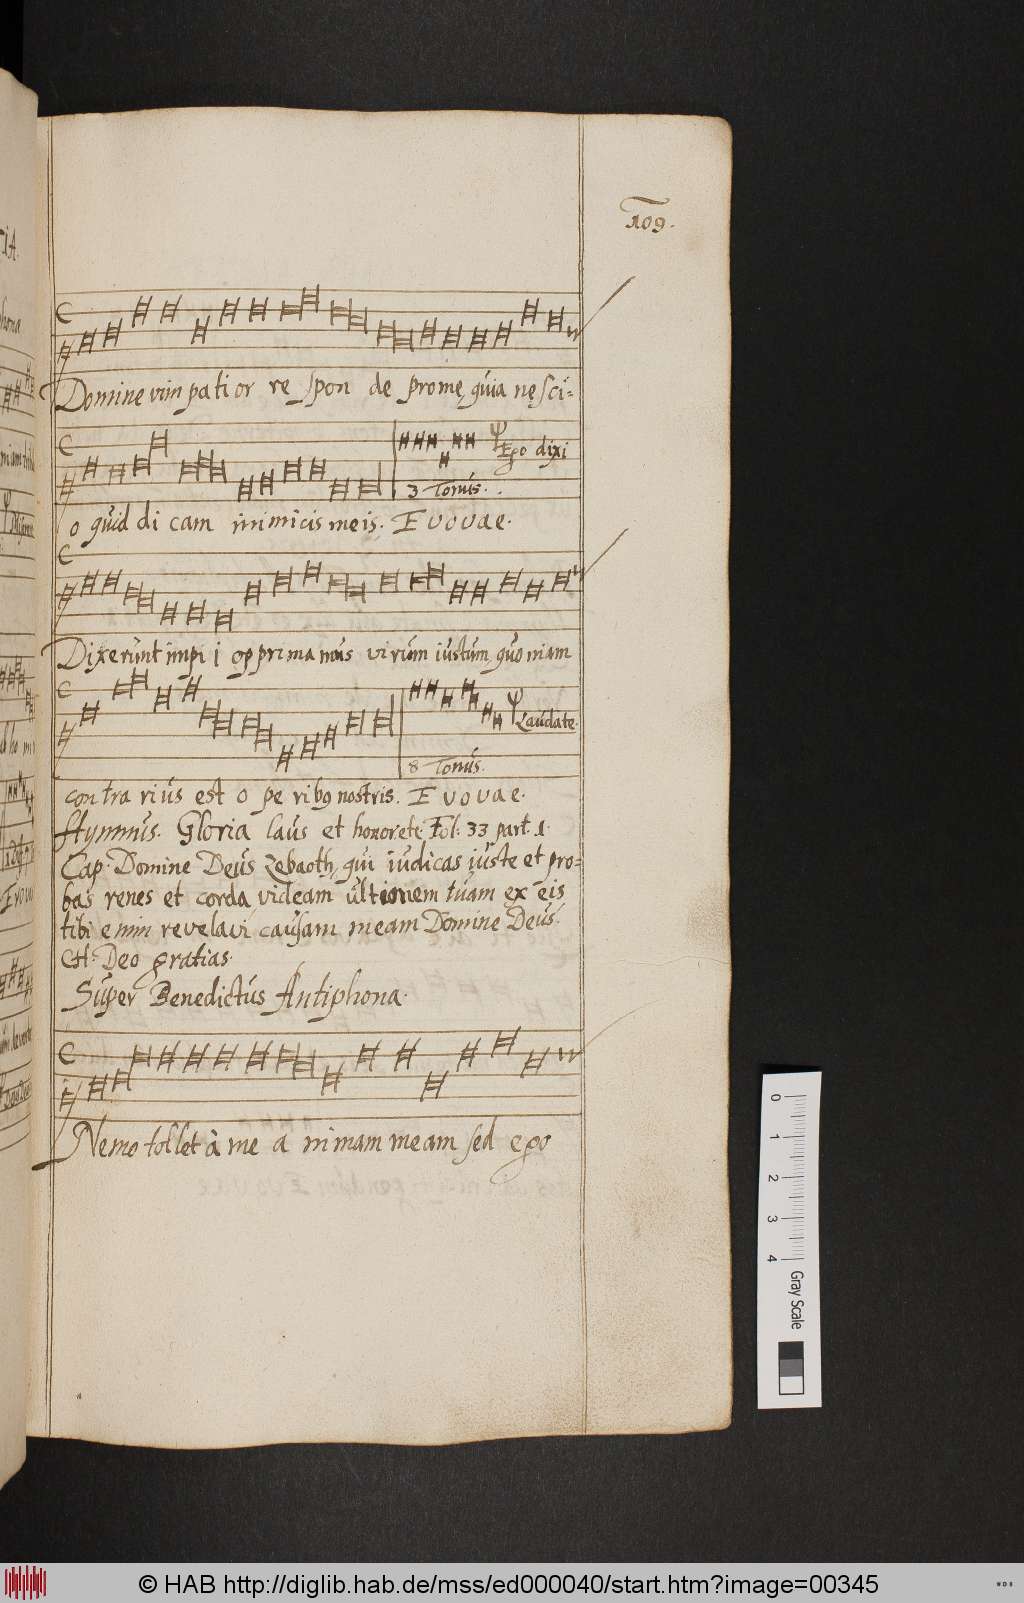 109.
Domine vim pati or re spon de prome, quia nęsci-
Ego dixi
3 Tonus.
o quid di cam inimicis meis. E v o v a e.
Dixerunt impi i opprima mus virum iustum, quo niam
Laudate.
8 Tonus.
con tra rius est o pe ribq nostris. E v o v a e.
Hymnus. Gloria laus et honor etc Fol: 33 part. 1.
Cap: Domine Deus Zebaoth, qui iudicas iuste et pro-
bas renes et corda, videam ultionem tuam ex eis
tibi enim revelavi causam meam Domine Deus.
Deo gratias.
Super Benedictus Antiphona.
Nemo tollet à me a nimam meam sed ego
0 1 2 3 4 Gray Scale
© HAB http://diglib.hab.de/mss/ed000040/start.htm?image=00345